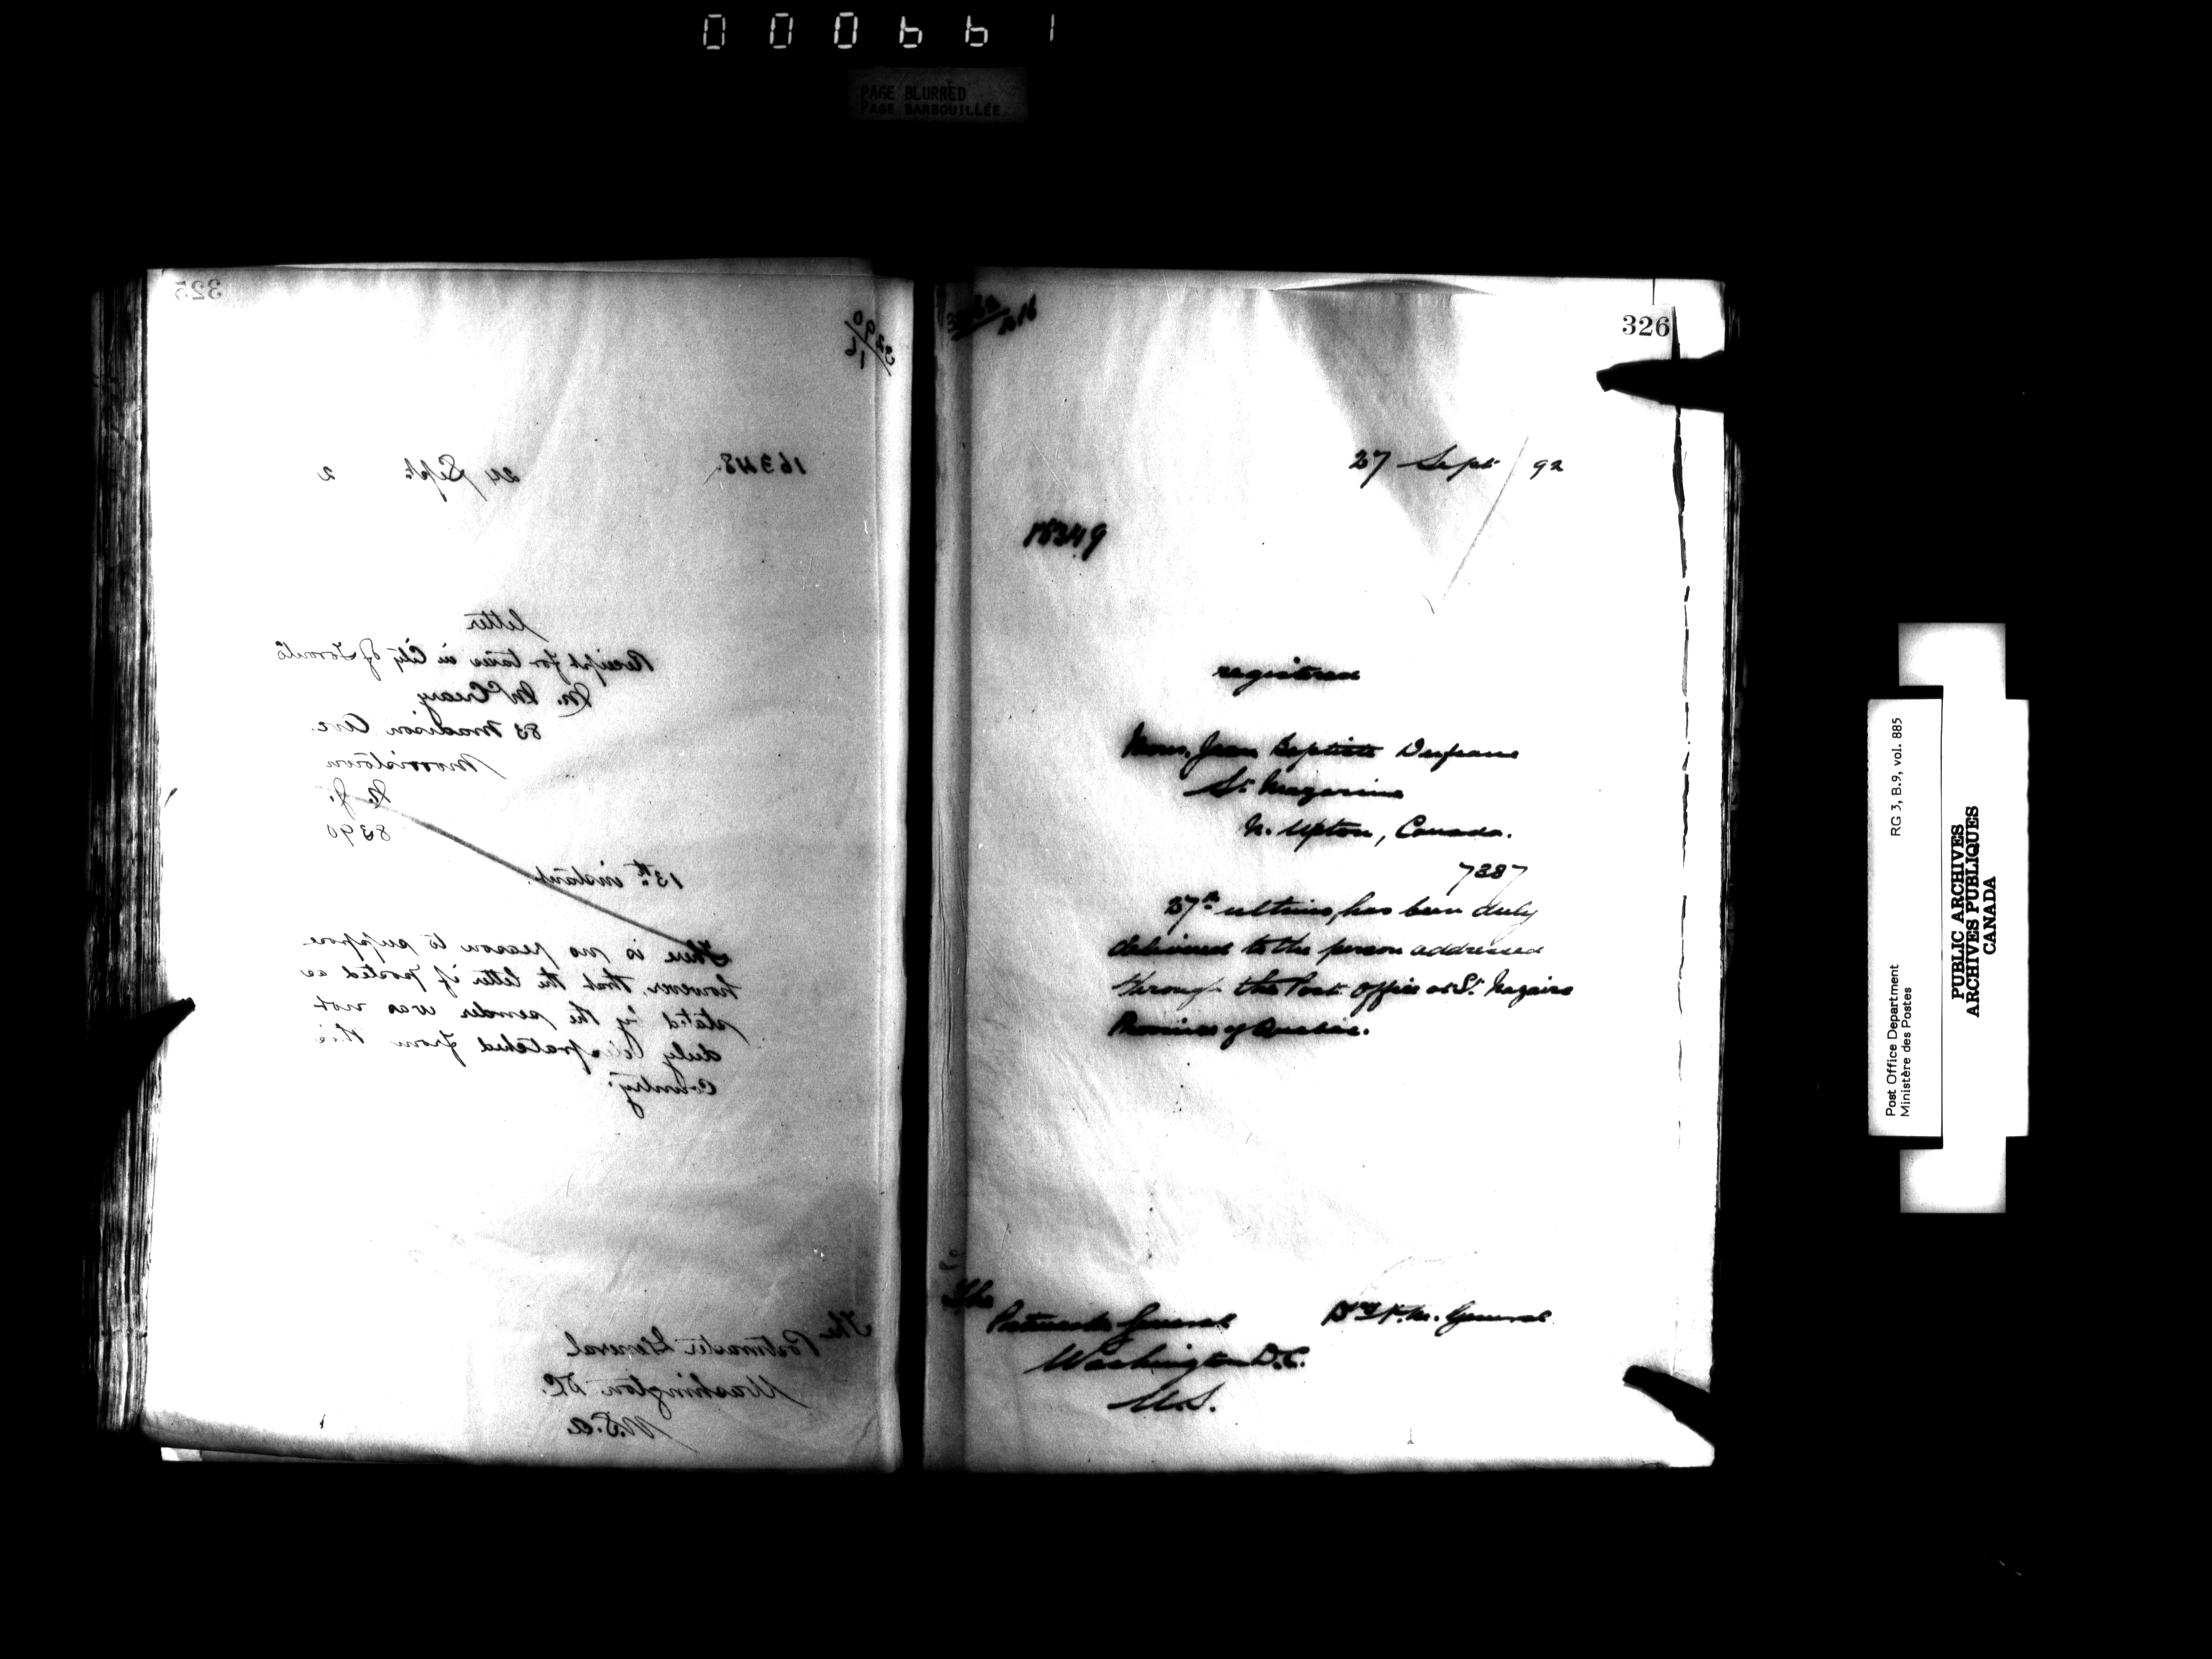 000661
PAGE BLURRED
PAGE BARBOUILLÉE
325
3290
16
16348.
24 Sept. 2
letter
Receipt for taxes in City of Toronto
M. McCreary
83 Madison Ave.
Morristown
N. J.
8390
13th instant.
There is no reason to suppose
however, that the letter if posted as
stated by the sender was not
duly despatched from this
Country.
The
Postmaster General
Washington D.C.
U.S.A.
326
27 Sept 92
16349
registered
Mons. Jean Baptiste
St.
N. Upton, Canada.
7387
27th ultimo, has been duly
delivered to the person addressed
through the Post Office at St. Nazaire
Province of Quebec.
The
Postmaster General
Washington D.C.
U.S.
Dy P. M. General
Post Office Department
Ministère des Postes
RG 3, B.9, vol. 885
PUBLIC ARCHIVES
ARCHIVES PUBLIQUES
CANADA